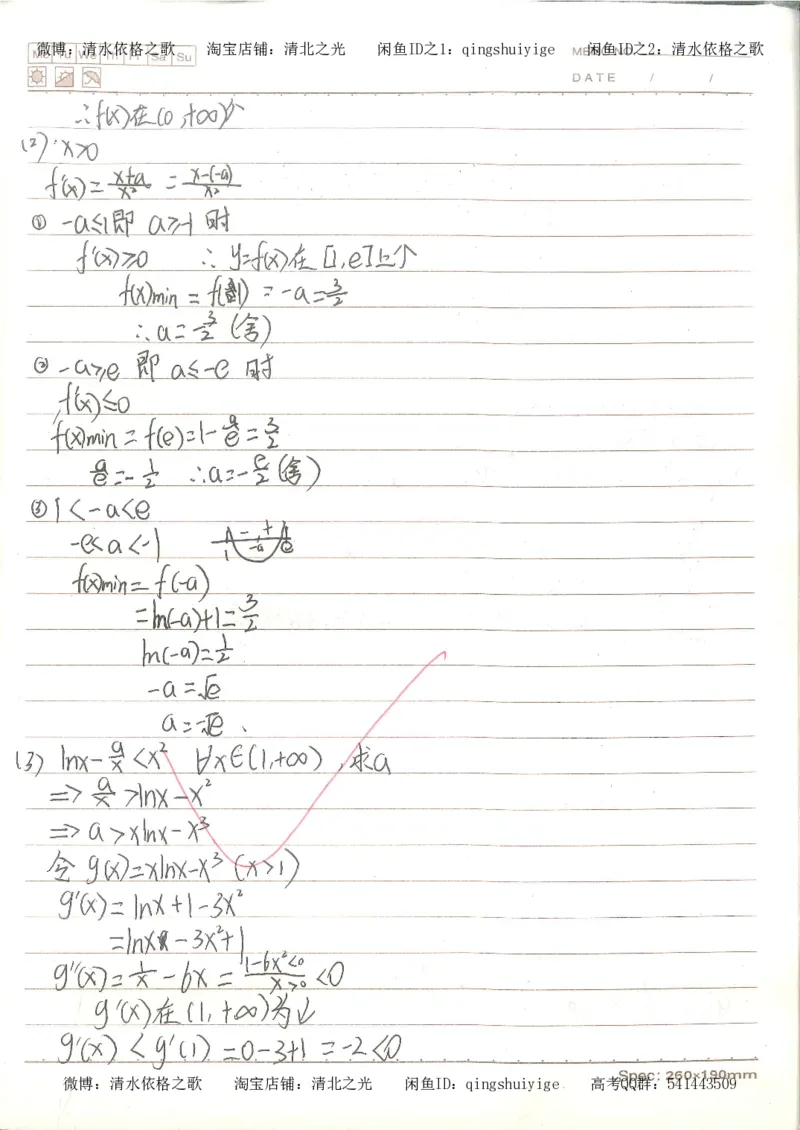 微博：清水依格之歌 淘宝店铺：清北之光 闲鱼ID之1：qingshuiyige 闲鱼ID之2：清水依格之歌
Mo Tu We Th Fr Sa Su
DATE / /
∴f(x)在(0,+∞)↑
(2) ∵x>0
f'(x)=\frac{x+a}{x²} =\frac{x-(-a)}{x²}
① -a≤1即 a≥-1 时
f'(x)≥0 ∴y=f(x)在[1,e]上↑
f(x)min = f(1) = -a = \frac{3}{2}
∴a=-\frac{3}{2} (舍)
② -a≥e 即 a≤-e 时
f'(x)≤0
f(x)min = f(e)=1-\frac{a}{e}=\frac{3}{2}
\frac{a}{e}=-\frac{1}{2} ∴a=-\frac{e}{2}(舍)
③ 1<-a<e
-e<a<-1 - + 1 -a e
f(x)min = f(-a)
=ln(-a)+1=\frac{3}{2}
ln(-a)=\frac{1}{2}
-a=√e
a=-√e .
(3) lnx-\frac{a}{x}<x² ∀x∈(1,+∞), 求a
=> \frac{a}{x}>lnx-x²
=> a>xlnx-x³
令 g(x)=xlnx-x³ (x>1)
g'(x)=lnx+1-3x²
=lnx-3x²+1
g''(x)=\frac{1}{x}-6x=\frac{1-6x²<0}{x>0}<0
g'(x)在(1,+∞)为↓
g'(x)<g'(1)=0-3+1=-2<0
Spec: 260×190mm
微博：清水依格之歌 淘宝店铺：清北之光 闲鱼ID：qingshuiyige 高考QQ群：541443509